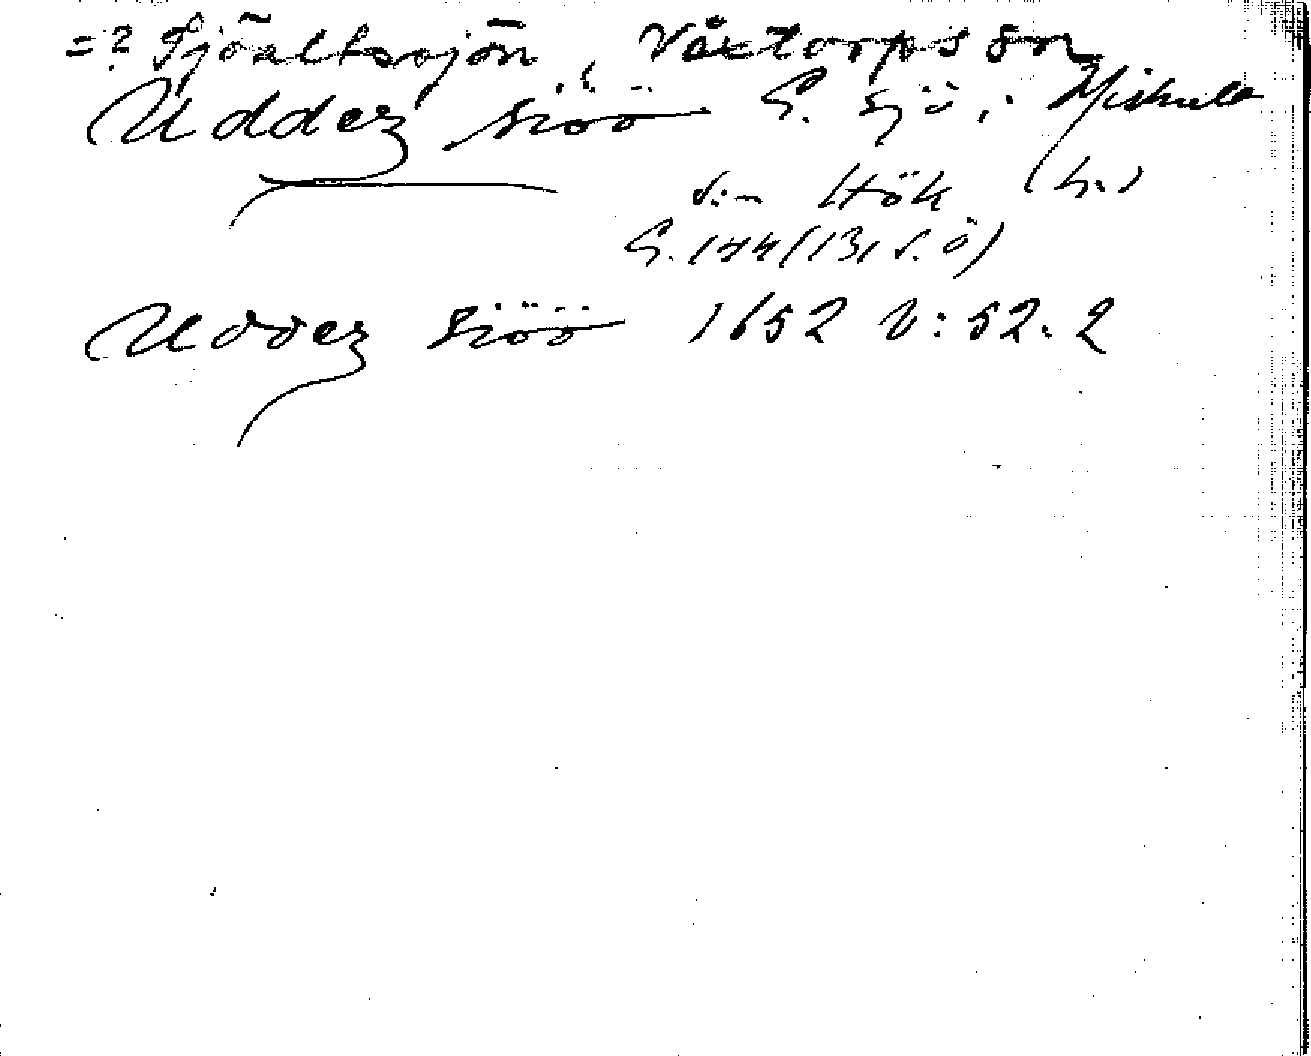 =? Sjöaltesjön, Våxtorps sn
Uddez siöö G. sjö i Hishult
s:n Hök (h.)
G. 144 (13, s. ö)
Uddez siöö 1652 V: 52. 2